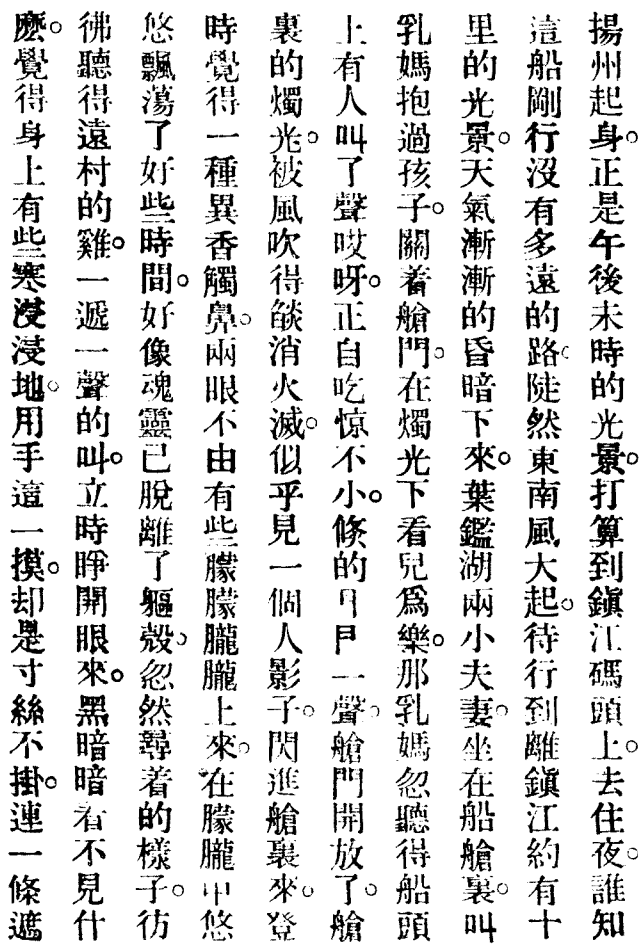 揚州起身。正是午後未時的光景。打算到鎭江碼頭上。去住夜。誰知
這船剛行沒有多遠的路。陡然東南風大起。待行到離鎭江約有十
里的光景。天氣漸漸的昏暗下來。葉鑑湖兩小夫妻。坐在船艙裏。叫
乳媽抱過孩子。關着艙門。在燭光下看兒爲樂。那乳媽忽聽得船頭
上有人叫了聲哎呀。正自吃惊不小。倏的一聲。艙門開放了。艙
裏的燭光。被風吹得燄消火滅。似乎見一個人影子。閃進艙裏來。登
時覺得一種異香觸鼻。兩眼不由有些朦朦朧朧上來。在朦朧中悠
悠飄蕩了好些時間。好像魂靈已脫離了軀殼。忽然尋着的樣子。彷
彿聽得遠村的雞。一遞一聲的叫。立時睜開眼來。黑暗暗看不見什
麽。覺得身上有些寒浸浸地。用手這一摸。却是寸絲不掛。連一條遮